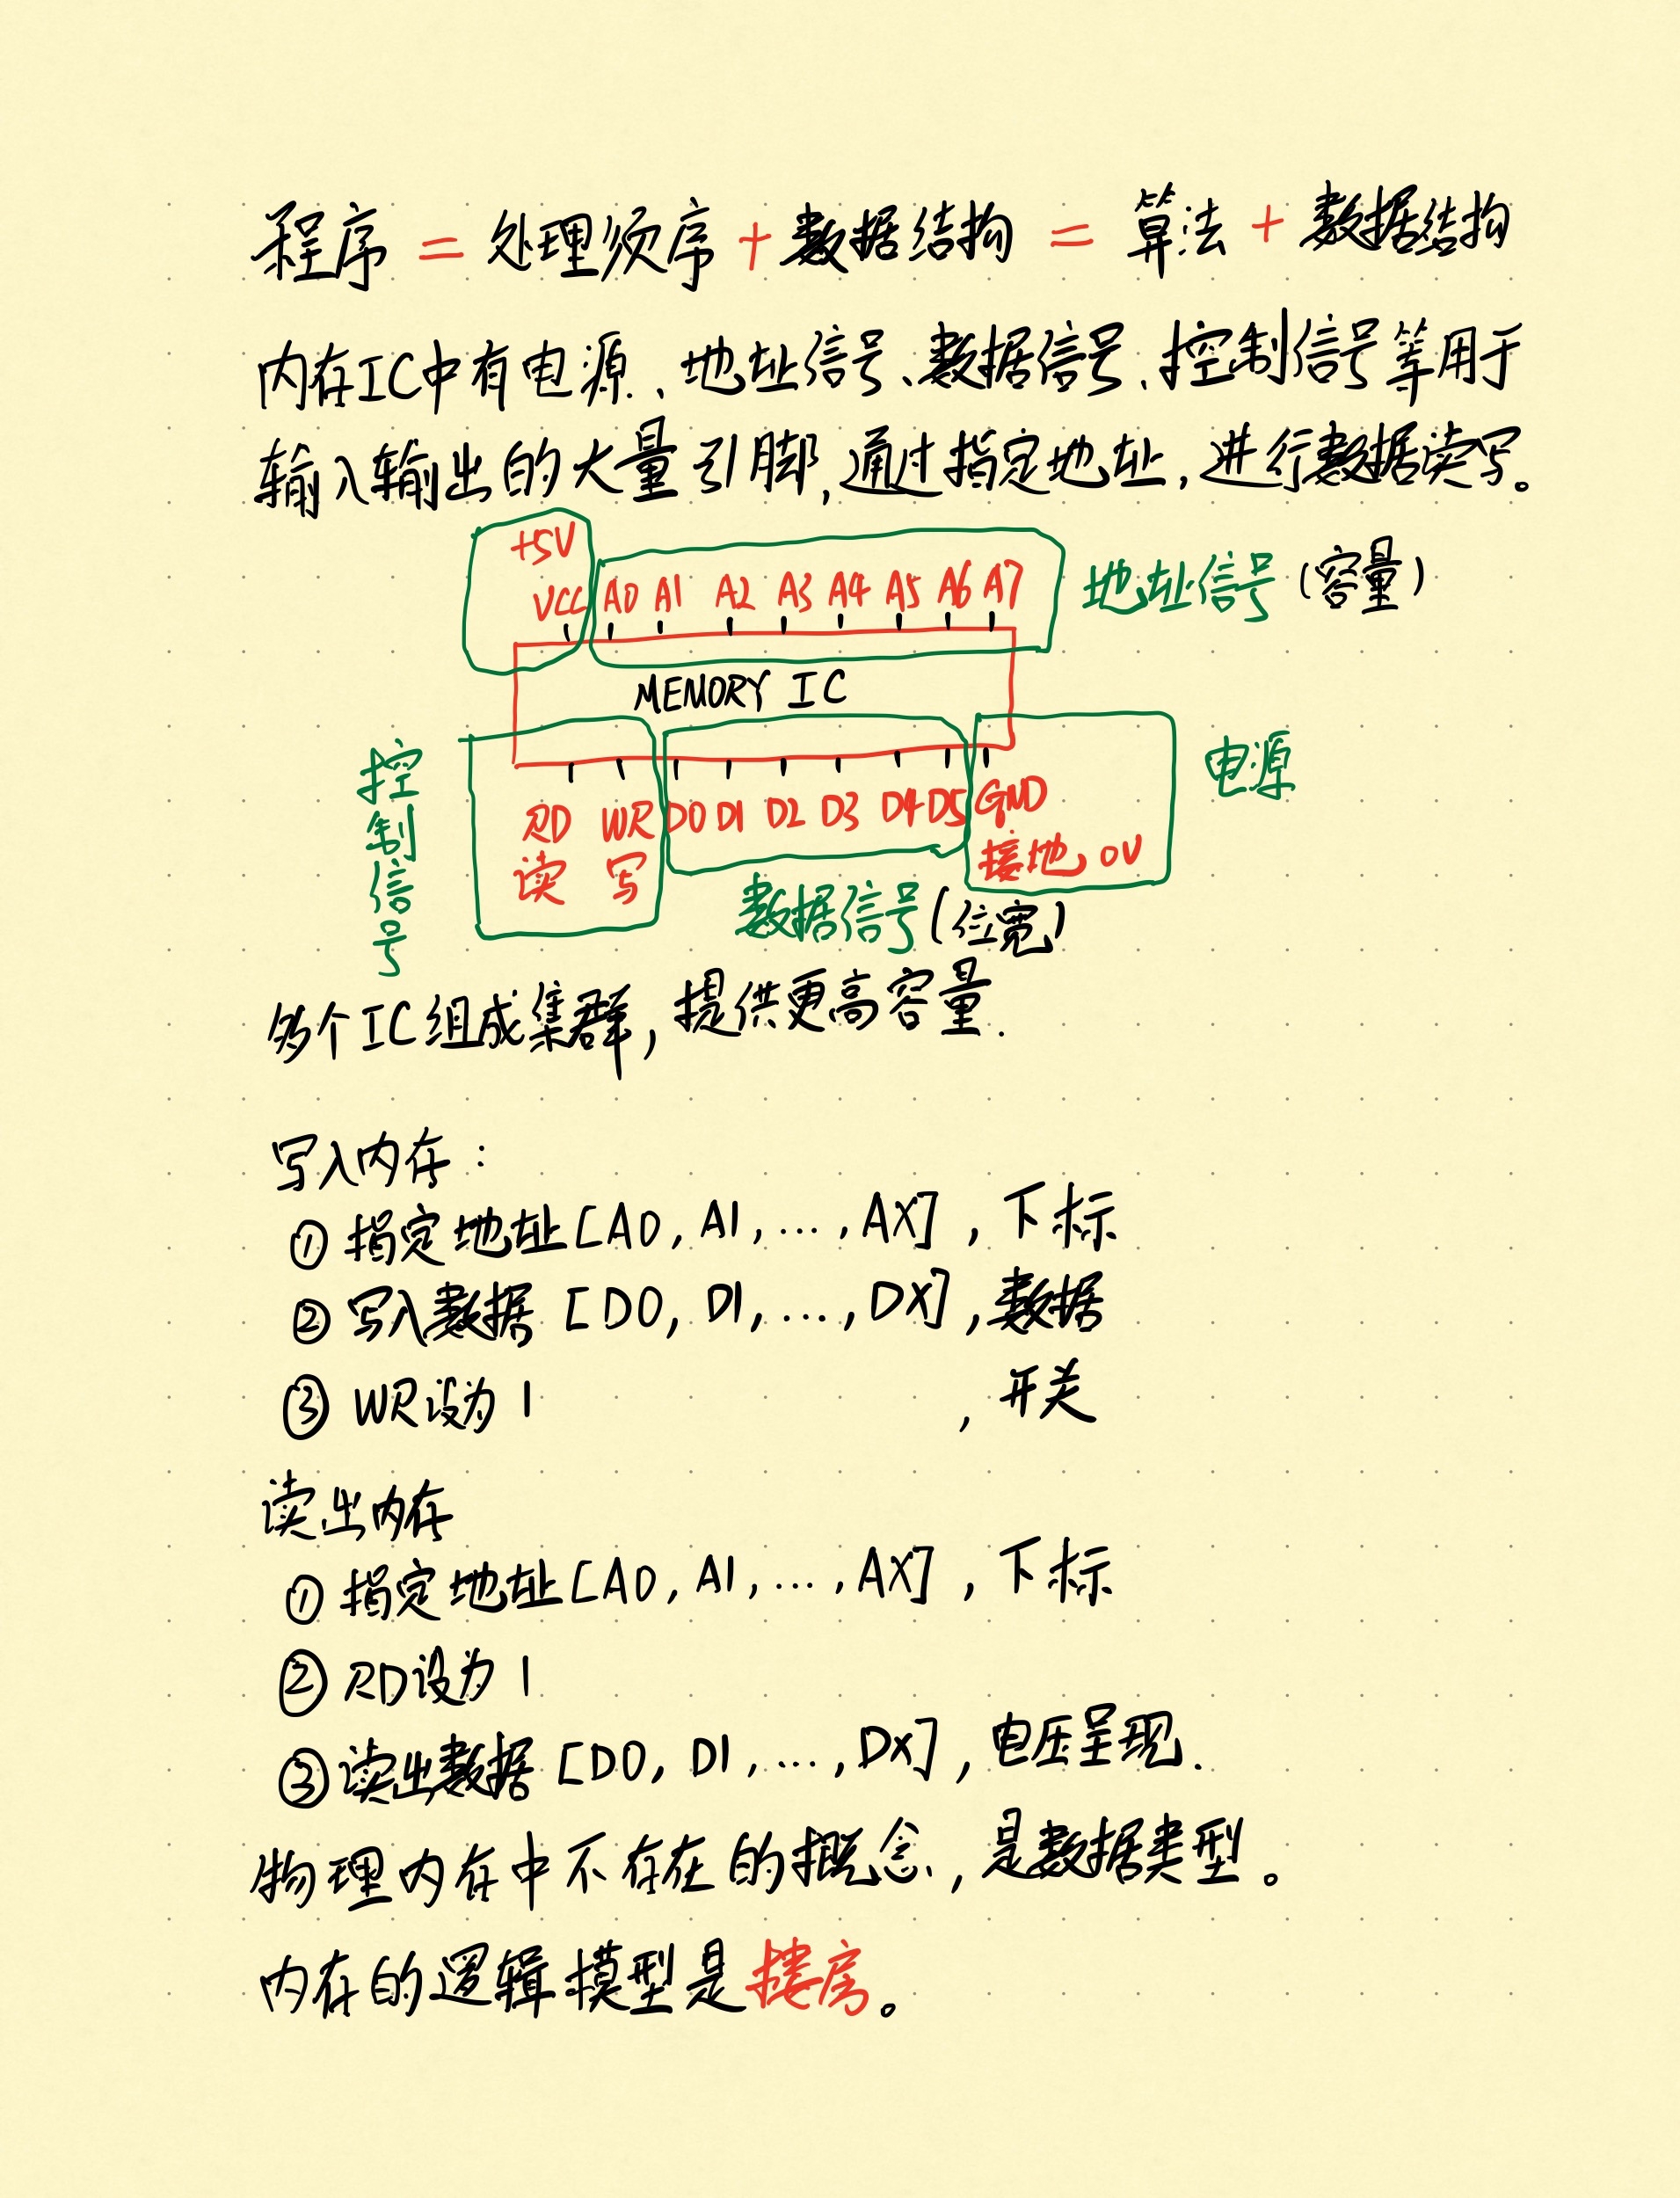 程序 = 处理顺序 + 数据结构 = 算法 + 数据结构
内存IC中有电源、地址信号、数据信号、控制信号等用于
输入输出的大量引脚,通过指定地址,进行数据读写。
+5V
VCC A0 A1 A2 A3 A4 A5 A6 A7
地址信号(容量)
MEMORY IC
控制信号
电源
RD WR D0 D1 D2 D3 D4 D5 GND
读 写 接地 0V
数据信号(位宽)
多个IC组成集群,提供更高容量.
写入内存:
① 指定地址[A0, A1, ..., AX], 下标
② 写入数据 [D0, D1, ..., DX], 数据
③ WR设为1 , 开关
读出内存
① 指定地址[A0, A1, ..., AX], 下标
② RD设为1
③ 读出数据 [D0, D1, ..., DX], 电压呈现.
物理内存中不存在的概念,是数据类型。
内存的逻辑模型是楼房。